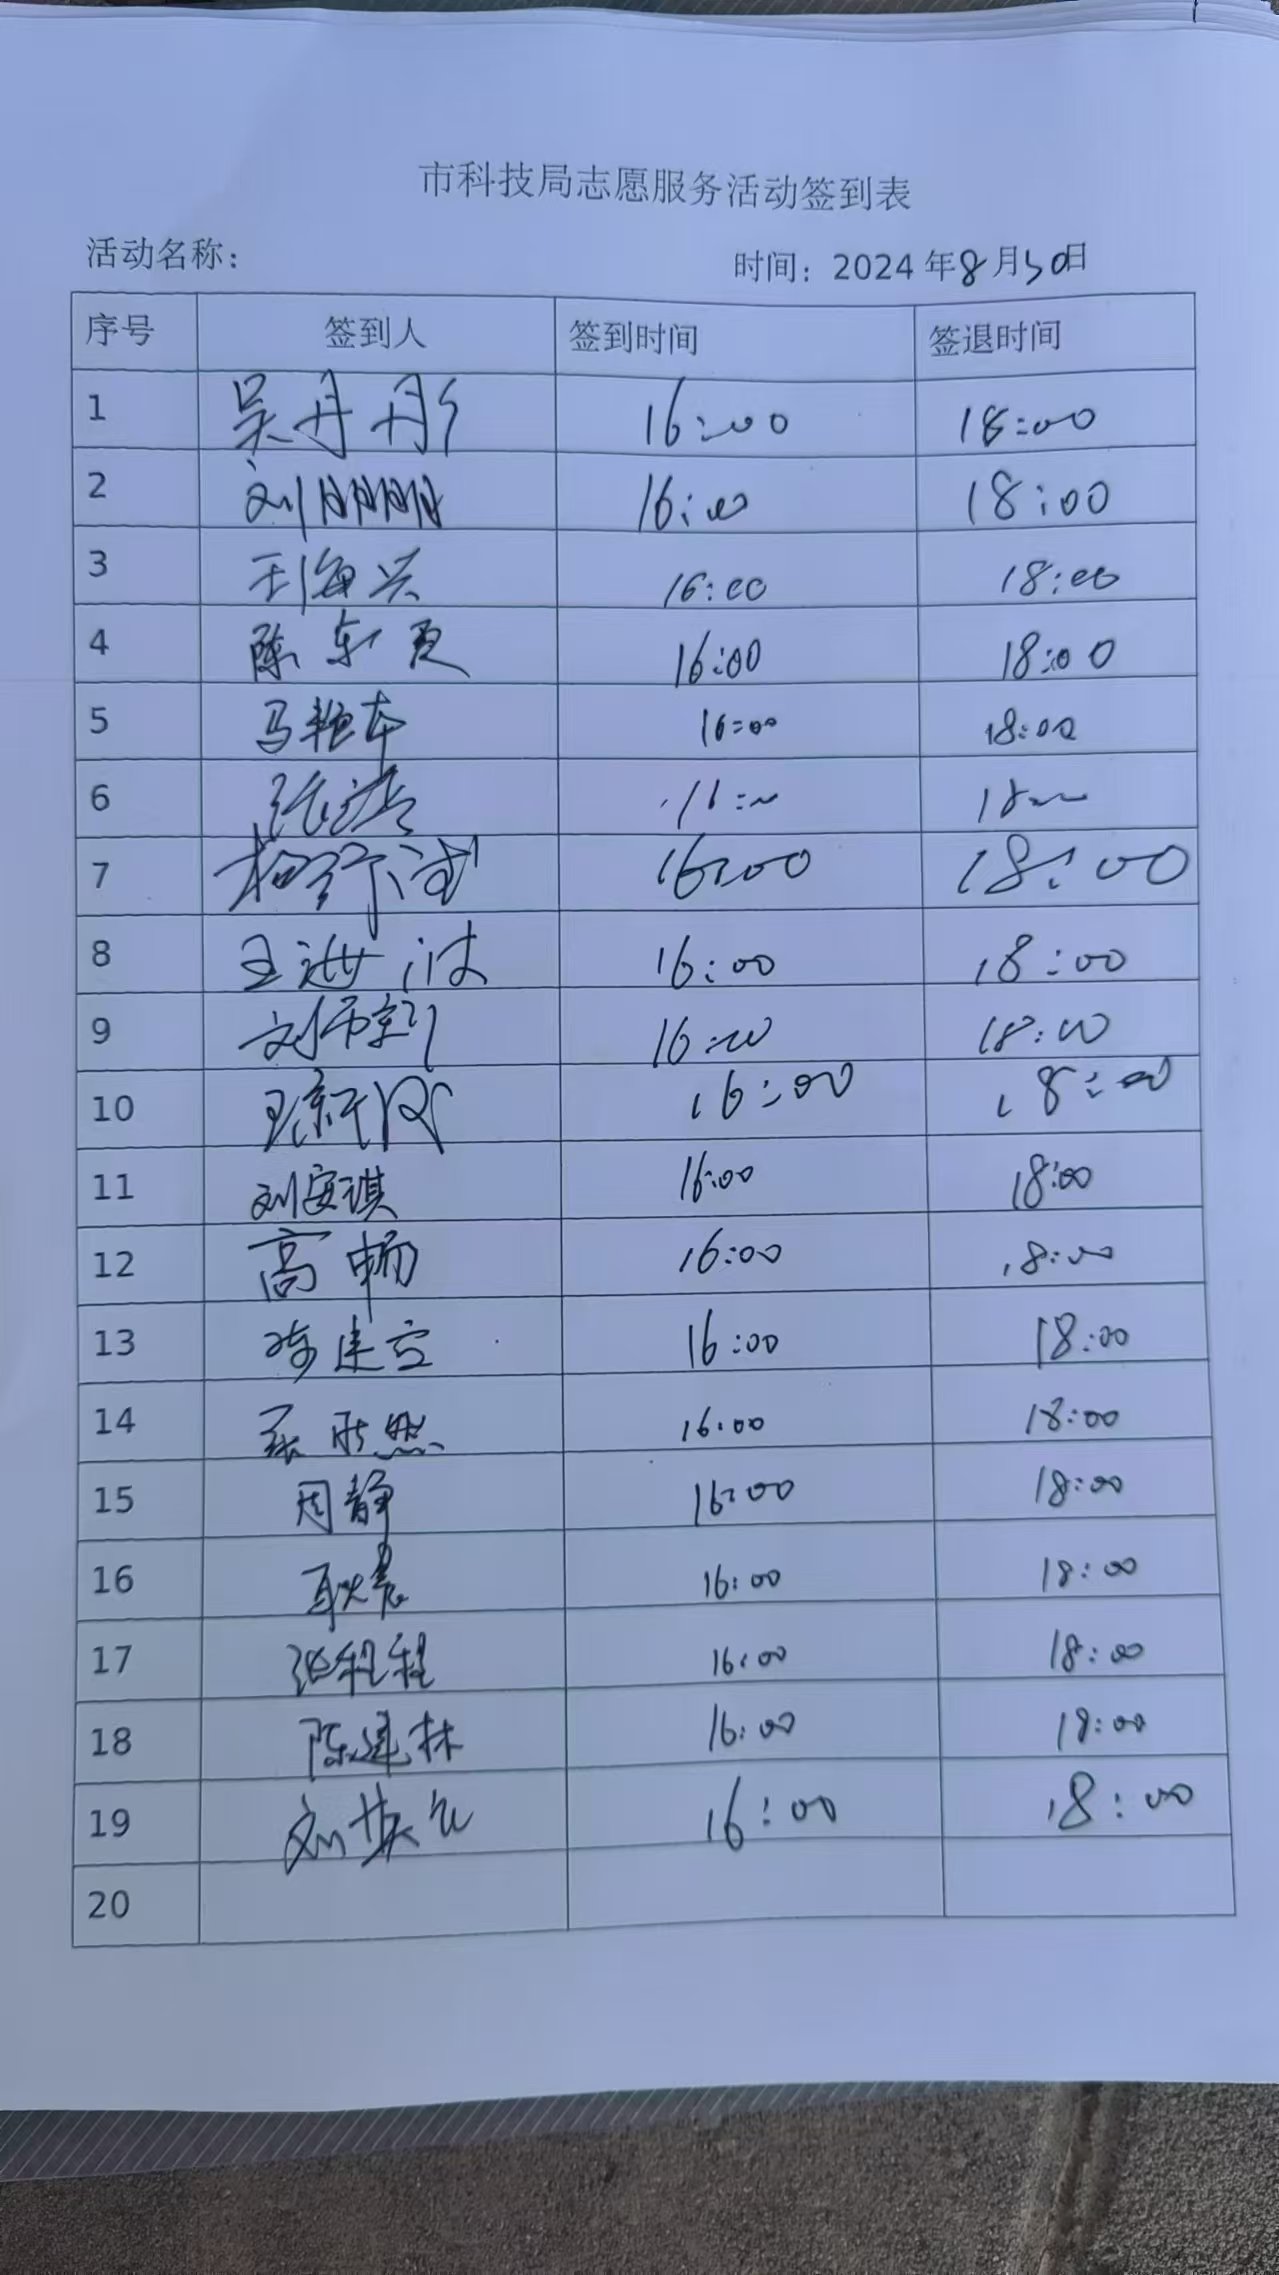 市科技局志愿服务活动签到表
活动名称： 时间：2024年8月30日
序号 签到人 签到时间 签退时间
1 吴丹彤 16:00 18:00
2 刘明明 16:00 18:00
3 王海兴 16:00 18:00
4 陈东更 16:00 18:00
5 马艳本 16:00 18:00
6 张洁 16:00 18:00
7 16:00 18:00
8 王 16:00 18:00
9 刘 16:00 18:00
10 16:00 18:00
11 刘安琪 16:00 18:00
12 高畅 16:00 18:00
13 陈建空 16:00 18:00
14 然 16:00 18:00
15 周静 16:00 18:00
16 耿 16:00 18:00
17 张程程 16:00 18:00
18 陈建林 16:00 18:00
19 刘 16:00 18:00
20